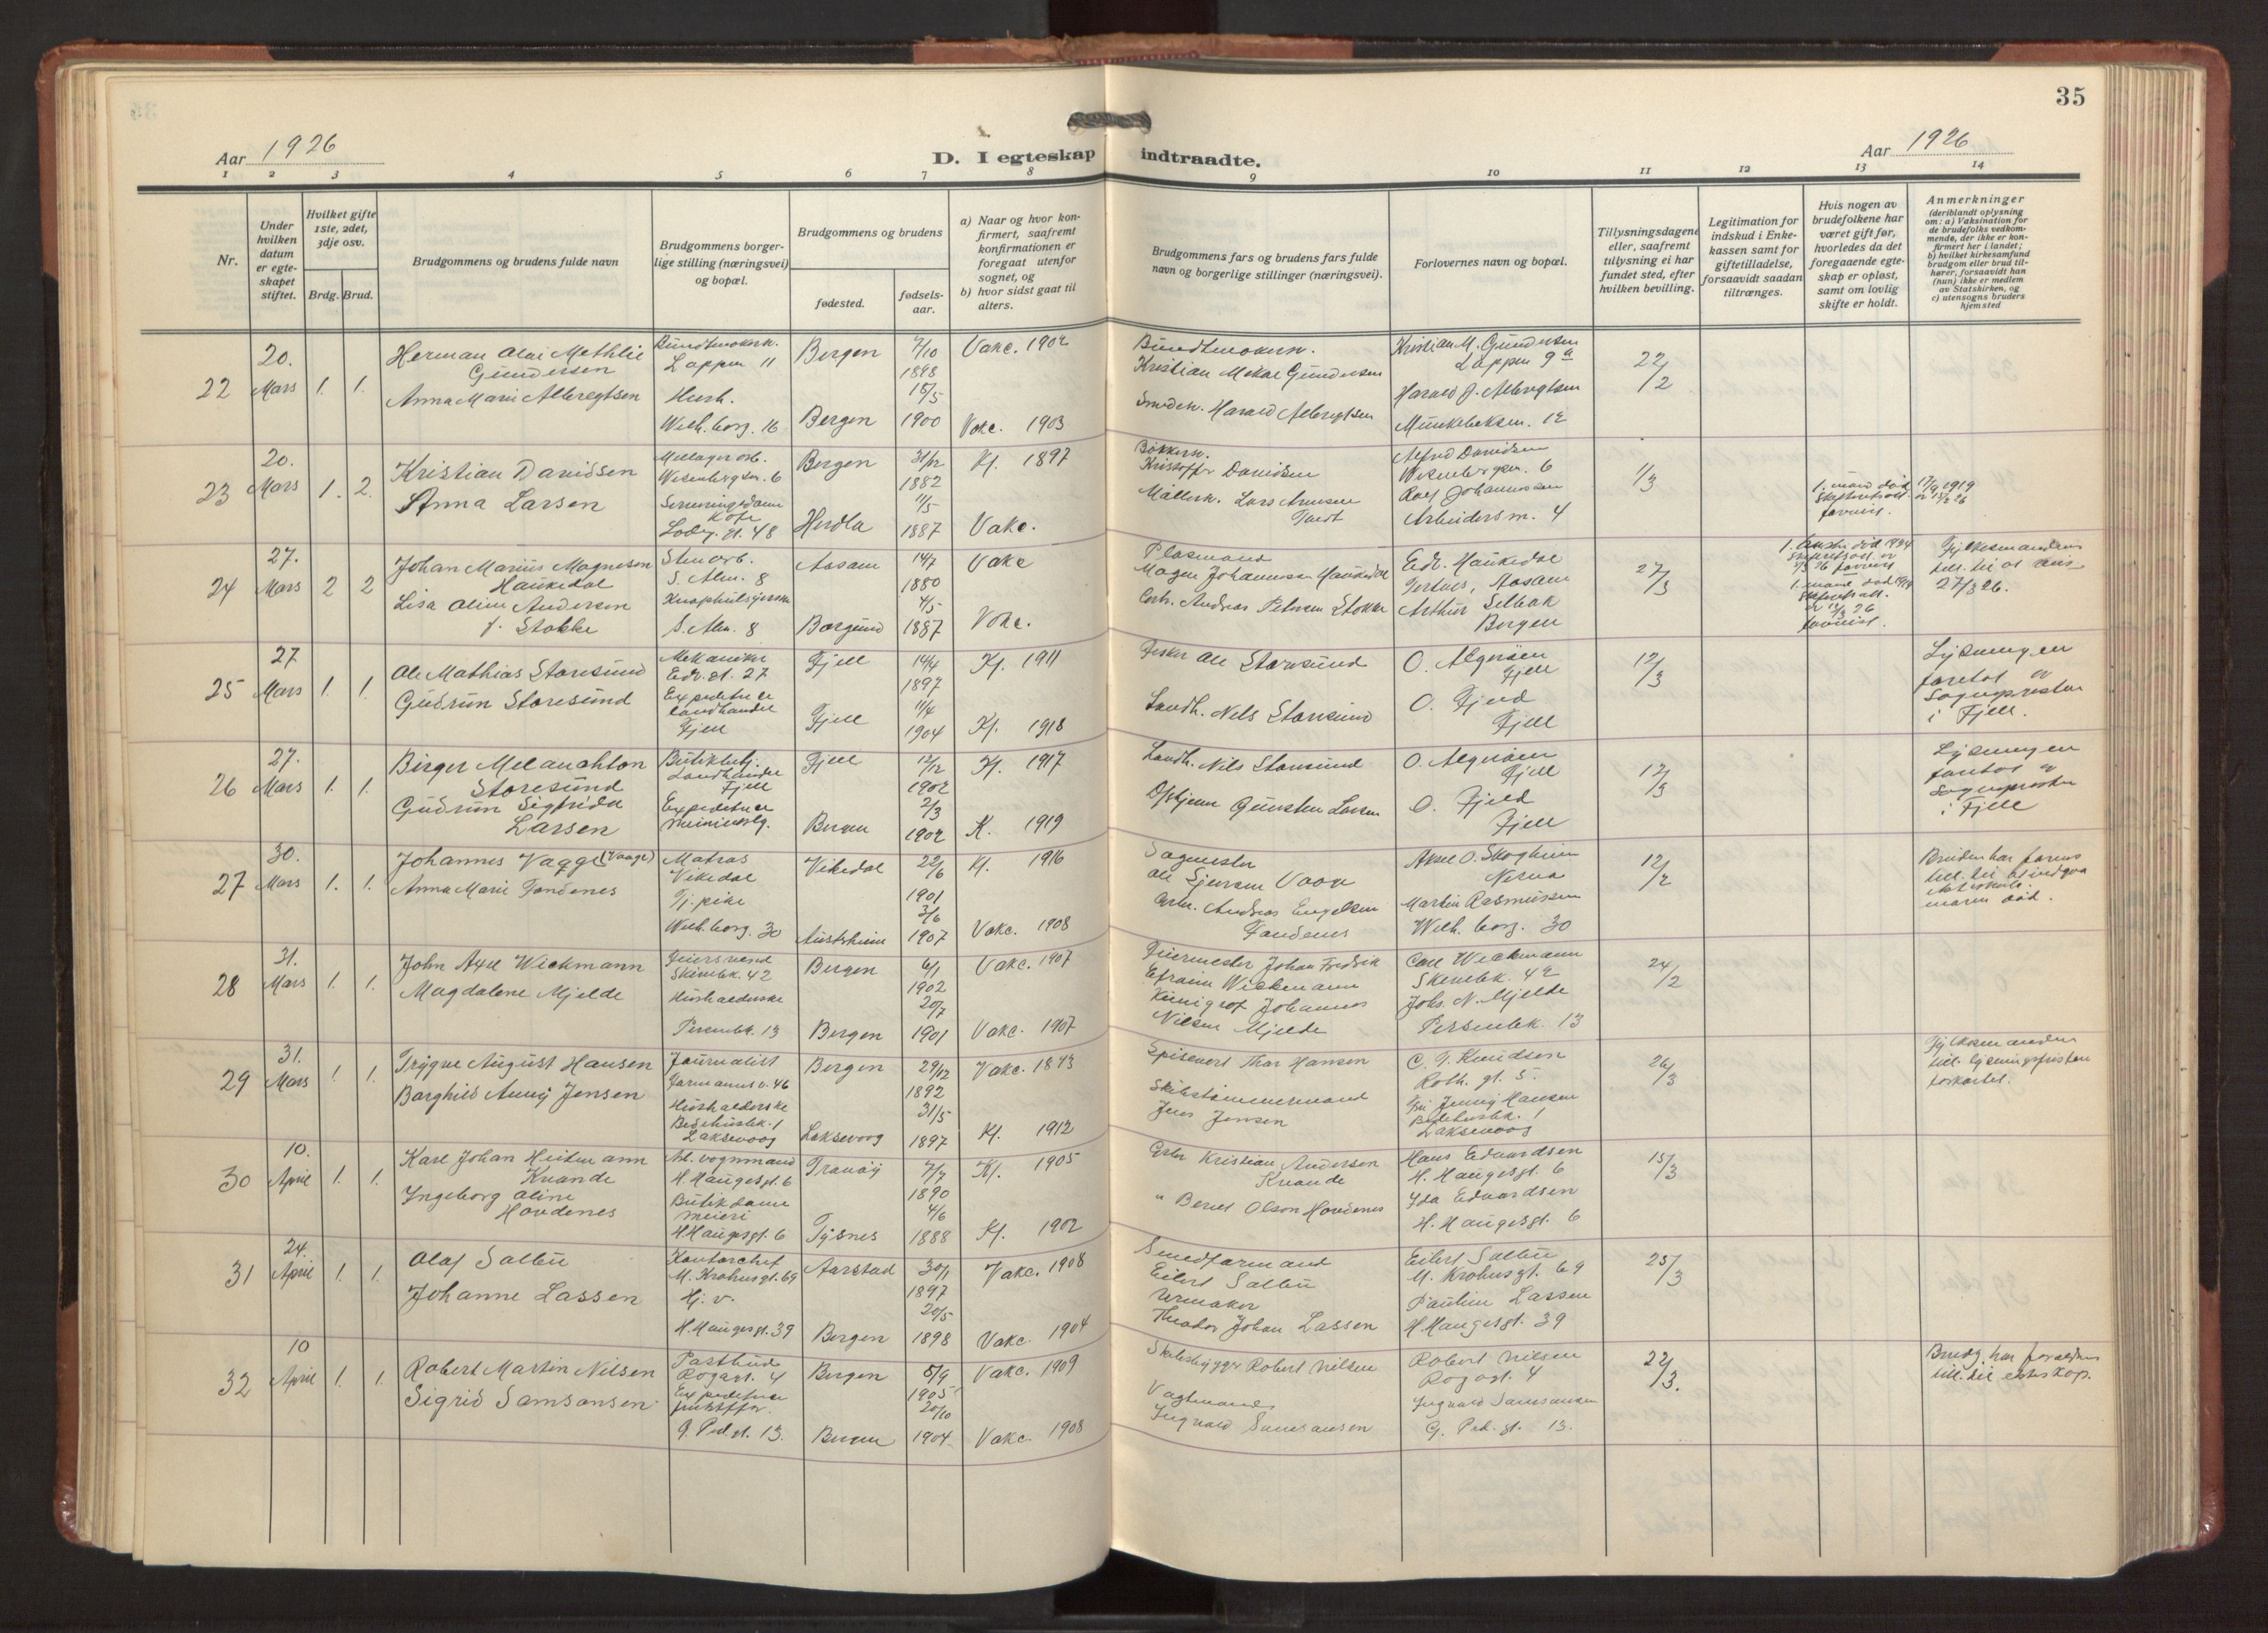 35
Aar 1926
D. I egteskap indtraadte.
Aar 1926
1 2 3 4 5 6 7 8 9 10 11 12 13 14
Nr.
Under hvilken datum er egteskapet stiftet.
Hvilket gifte 1ste, 2det, 3dje osv.
Brdg. Brud.
Brudgommens og brudens fulde navn
Brudgommens borgerlige stilling (næringsvei) og bopæl.
Brudgommens og brudens
fødested.
fødselsaar.
a) Naar og hvor konfirmert, saafremt konfirmationen er foregaat utenfor sognet, og
b) hvor sidst gaat til alters.
Brudgommens fars og brudens fars fulde navn og borgerlige stillinger (næringsvei).
Forlovernes navn og bopæl.
Tillysningsdagene eller, saafremt tillysning ei har fundet sted, efter hvilken bevilling.
Legitimation for indskud i Enkekassen samt for giftetilladelse, forsaavidt saadan tiltrænges.
Hvis nogen av brudefolkene har været gift før, hvorledes da det foregaaende egteskap er opløst, samt om lovlig skifte er holdt.
Anmerkninger
(deriblandt oplysning om: a) Vaksination for de brudefolks vedkommende, der ikke er konfirmert her i landet;
b) hvilket kirkesamfund brudgom eller brud tilhører, forsaavidt han (hun) ikke er medlem av Statskirken, og
c) utensogns bruders hjemsted
22 20. Mars 1. 1.
Herman Olai Methlie Gundersen
Lappen 11
Bergen 7/10 1898 Vakc. 1902
Kristian Mekal Gundersen
Kristian M. Gundersen
Lappen 9 a
22/2
Anna Marie Albregtsen
Hush.
Wilh. borg. 16
Bergen 18/5 1900 Vakc. 1903
Smedm. Harald Albregtsen
Harald J. Albregtsen
23 20. Mars 1. 2.
Kristian Davidsen
Wesenbergsm. 6
Bergen 31/12 1882 Kf. 1897
Bøkkerm.
Kristoffer Davidsen
Alfred Davidsen
Wesenbergsm. 6
11/3
Anna Larsen
Serveringsdame
Kafe
Lodg. gt. 48
Herdla 11/5 1887 Vakc.
Møllerm. Lars Arnesen
Rolf Johannessen
Arbeidersm. 4
1. mand død 17/9 1919
24 27. Mars 2 2
Johan Marius Magnesen Haukedal
Stenarb.
S. Alm. 8
Aasane 14/7 1880 Vakc
Plasmand
Mogens Johannessen Haukedal
Edv. Haukedal
Tertnes, Aasane
27/3
Lisa Oline Andersen f. Stokke
S. Alm. 8
Borgund 4/5 1887 Vakc.
Arb. Andreas Petersen Stokke
Arthur Selbak
Bergen
1. hustru død 1924
Fylkesmandens
27/3 26.
25 27 Mars 1. 1.
Ole Mathias Storesund
Mekaniker
Edv. gt. 27
Fjell 14/4 1897 Kf. 1911
Fisker Ole Storesund
O. Algrøen
Fjell
12/3
Gudrun Storesund
Expeditrice
landhandel
Fjell
Fjell 11/4 1904 Kf. 1918
Landh. Nils Storesund
O. Fjeld
Fjell
Lysningen foretat av Sognepresten i Fjell.
26 27. Mars 1. 1.
Birger Melanchton Storesund
Butikbetj.
Landhandel
Fjell
Fjell 12/12 1902 Kf. 1917
Landh. Nils Storesund
O. Algrøen
Fjell
12/3
Gudrun Sigfrida Larsen
Expeditrice
Bergen 2/3 1902 K. 1919
Gunsten Larsen
O. Fjeld
Fjell
Lysningen foretat av Sognepresten i Fjell
27 30. Mars 1. 1.
Johannes Vagge (Vaage)
Matros
Vikedal
Vikedal 22/6 1901 Kf. 1916
Aksel O. Skogheim
12/2
Anna Marie Fondenes
Tj. pike
Wilh. borg. 30
Austrheim 3/6 1907 Vakc. 1908
Arb. Andreas Engelsen Fondenes
Martin Rasmussen
Wilh. borg. 30
Bruden har
28 31. Mars 1. 1.
John Axel Wickmann
Feiersvend
Skivebk. 42
Bergen 6/1 1902 Vakc. 1907
Feiermester Johan Fredrik Efraim Wickmann
Carl Wickmann
Skivebk. 42
24/2
Magdalene Mjelde
Husholderske
Persenbk. 13
Bergen 20/7 1901 Vakc. 1907
Johannes Nilsen Mjelde
Johs. N. Mjelde
Persenbk. 13
29 31. Mars 1. 1.
Trygve August Hansen
Journalist
Formanns v. 46
Bergen 29/12 1892 Vakc. 1893
Thor Hansen
C. T. Knudsen
Roth. gt. 5.
26/3
Borghild Anny Jensen
Husholderske
Bedehusbk. 1
Laksevaag
Laksevaag 31/5 1897 Kf. 1912
Skibstømmermand
Jens Jensen
Jenny Hansen
Bedehusbk. 1
Laksevaag
Fylkesmanden till. lysningsfristen forkortet.
30 10. April 1. 1.
Karl Johan Heitmann Knande
vognmand
H. Haugesgt. 6
Tranøy 7/7 1890 Kf. 1905
Kristian Andersen Knande
Hans Edvardsen
H. Haugesgt. 6
15/3
Ingeborg Oline Hovdenes
Butikdame
meieri
H. Haugesgt. 6
Tysnes 4/6 1888 Kf. 1902
" Bernt Olson Hovdenes
Ida Edvardsen
H. Haugesgt. 6
31 24. April 1. 1.
Olaf Salbu
Kontorchef
M. Krohnsgt. 69
Aarstad 30/1 1897 Vakc. 1908
Smedformand
Eilert Salbu
Eilert Salbu
M. Krohnsgt. 69
25/3
Johanne Lassen
Hj. v.
H. Haugesgt. 39
Bergen 20/5 1898 Vakc. 1904
Urmaker
Theodor Johan Lassen
Pauline Lassen
H. Haugesgt. 39
32 10 April 1. 1.
Robert Martin Nilsen
Postbud
Rogagt. 4
Bergen 5/9 1905 Vakc. 1909
Skibsbygger Robert Nilsen
Robert Nilsen
Rogagt. 4
22/3.
Sigrid Samsonsen
Expeditrice
G. Ped. gt. 13.
Bergen 20/10 1904 Vakc. 1908
Vagtmand
Ingvald Samsonsen
Ingvald Samsonsen
G. Ped. gt. 13.
Brudg. har forældres till. til ekteskap.